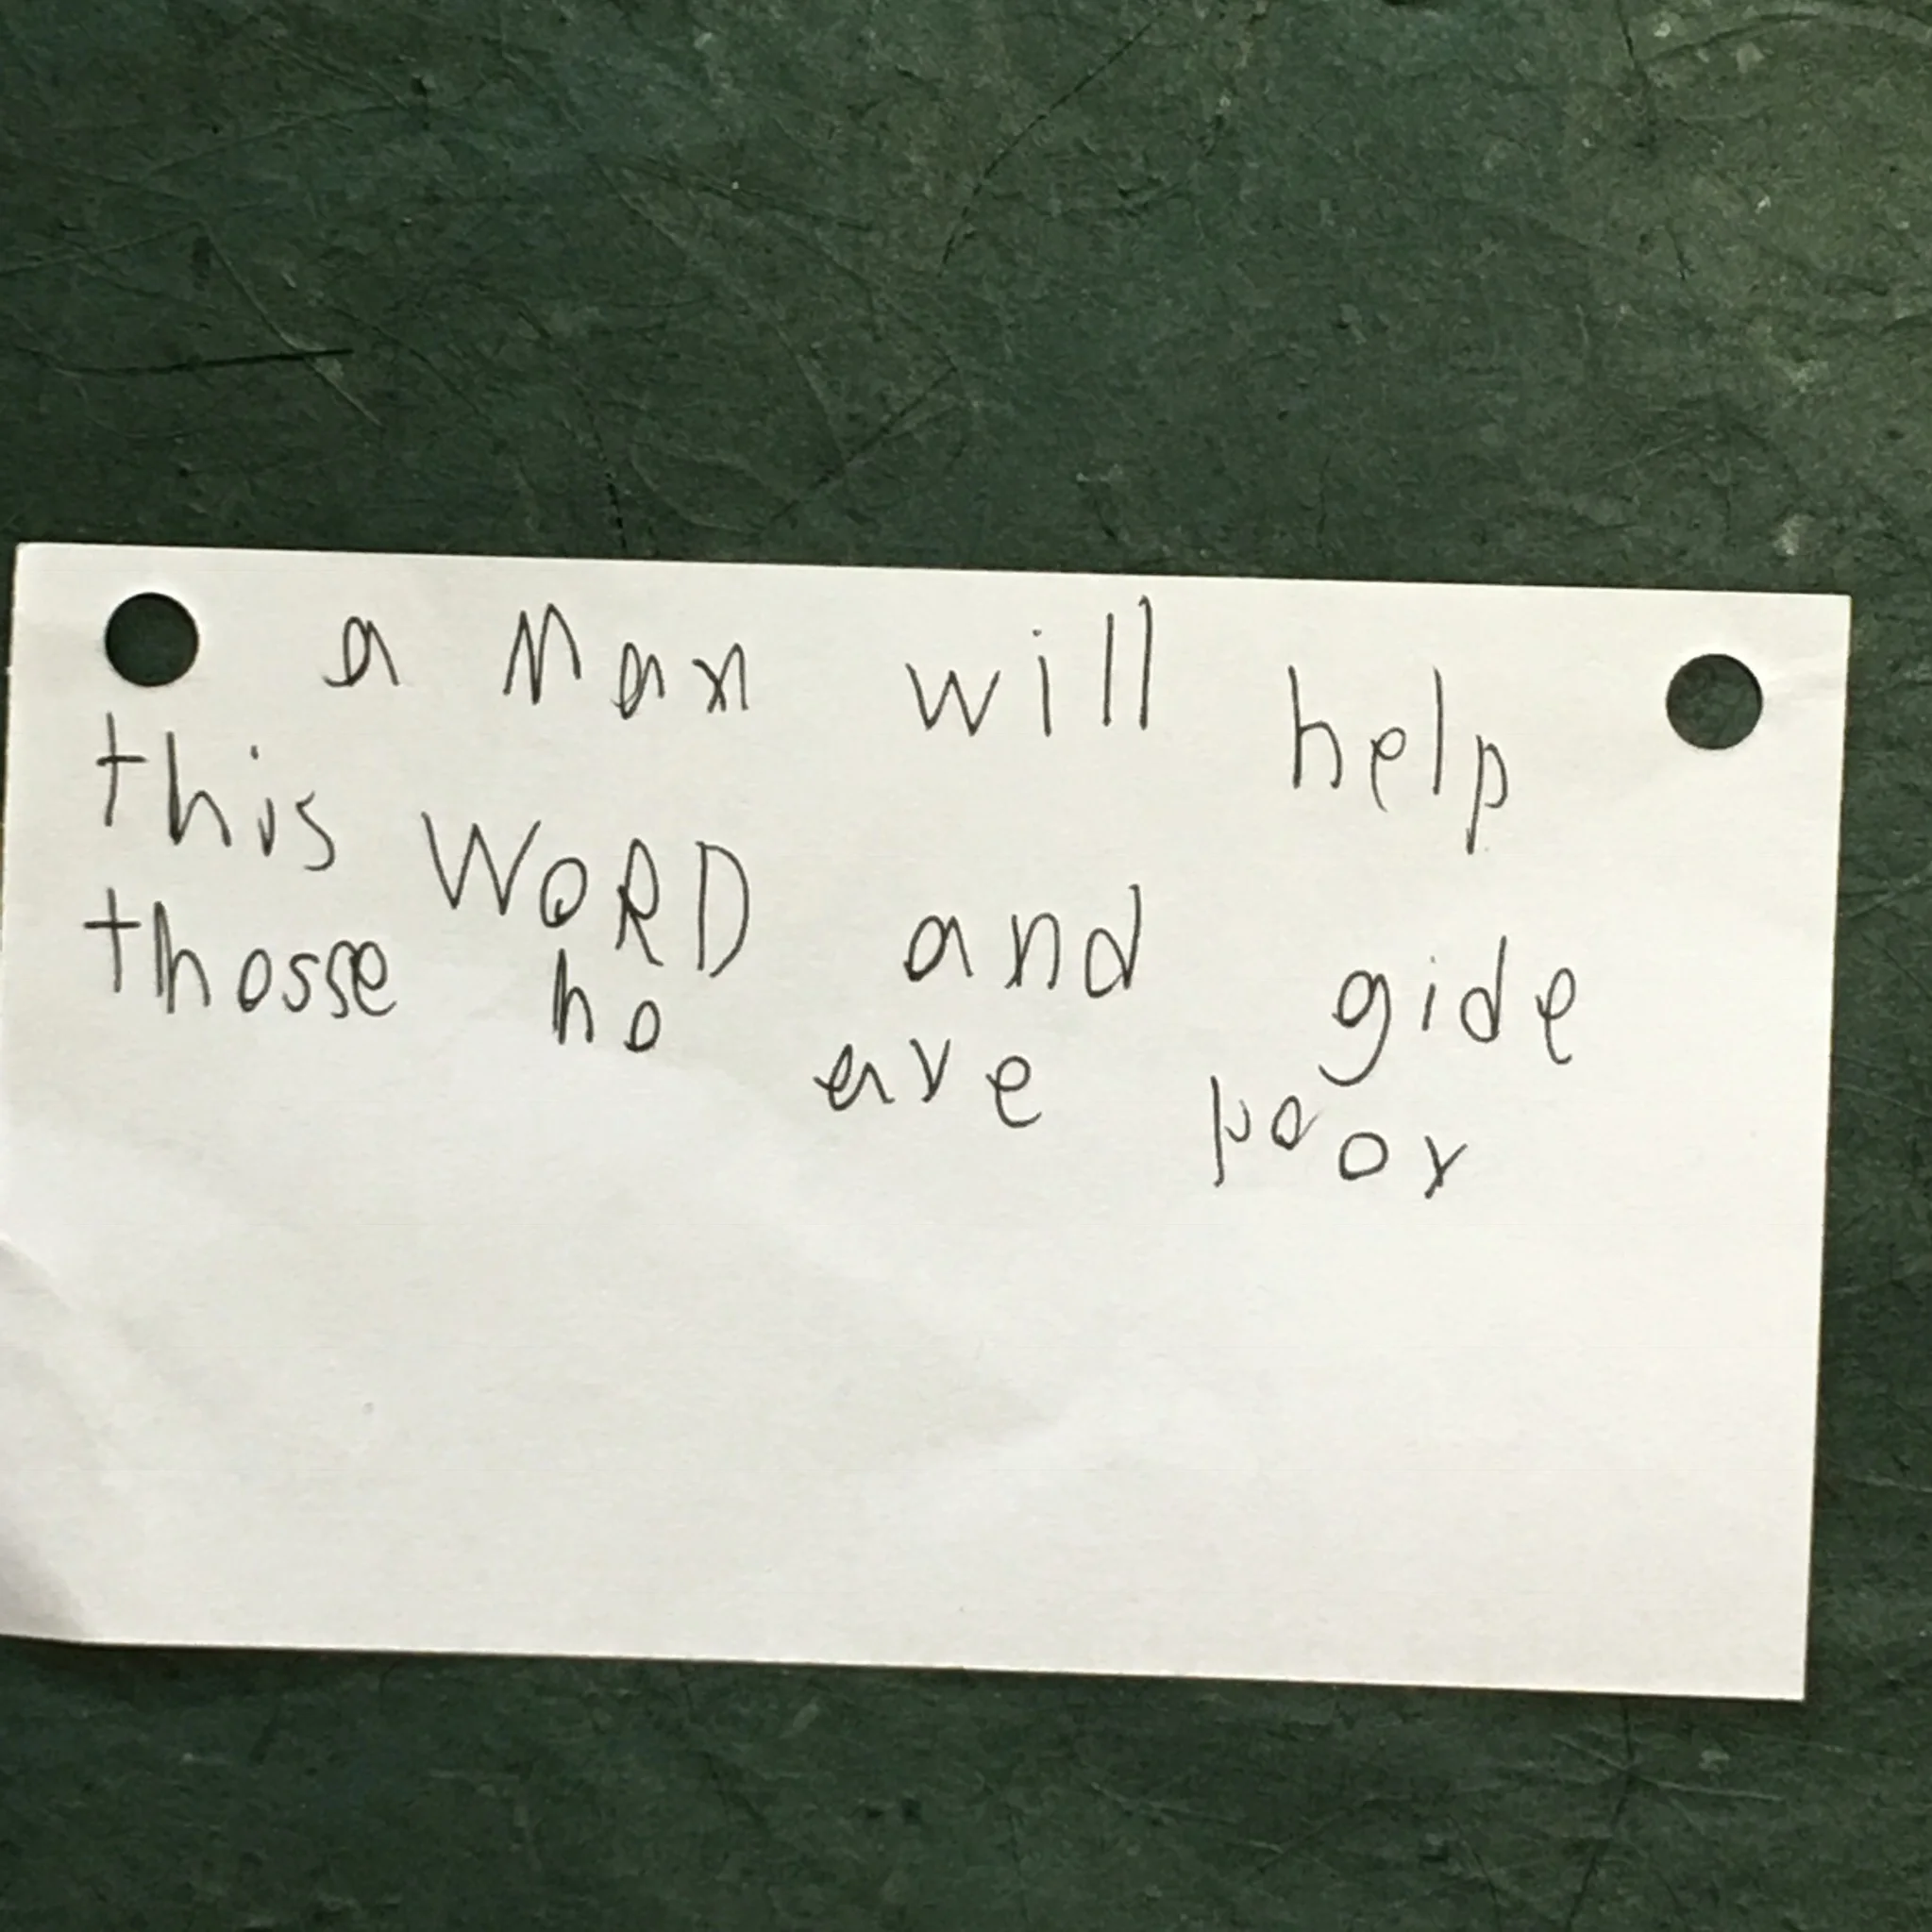 a Man will help
this WoRD and gide
thosse ho are poor